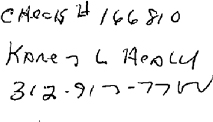 CHECK # 166810
KAREN L HEALY
312-917-77